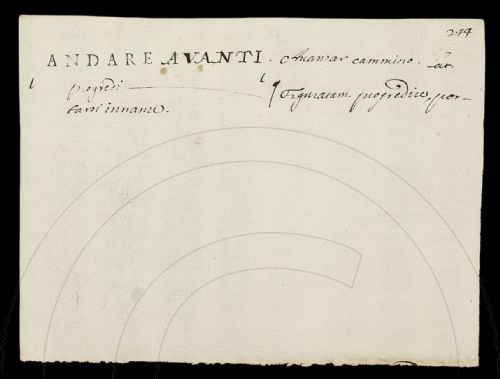 244
ANDARE AVANTI. Avanzar cammino. Lat.
progredi ——— ¶ Figuratam. progredire, por-
tarsi innanzi.